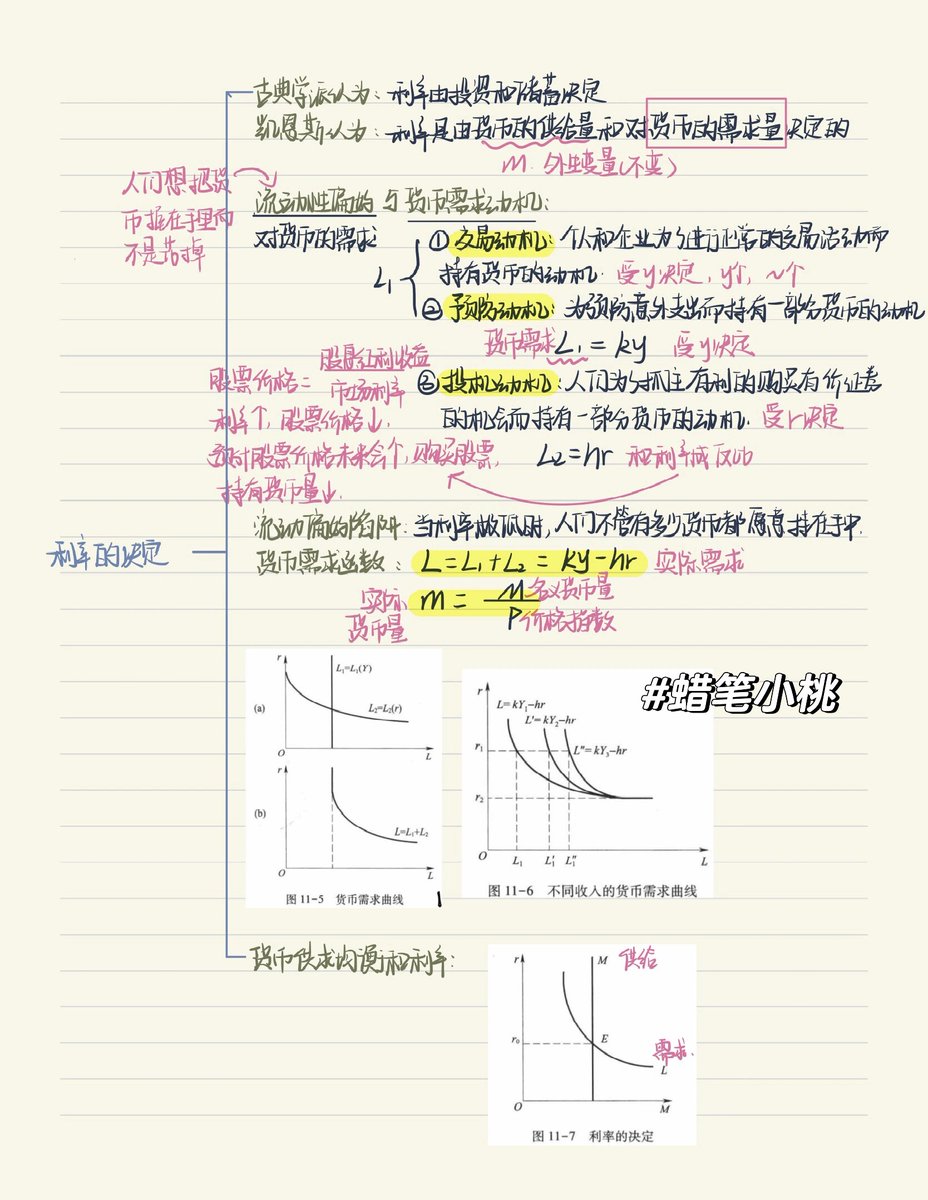 古典学派认为：利率由投资和储蓄决定
凯恩斯认为：利率是由货币的供给量和对货币的需求量决定的
m. 外生变量(不变)
人们想把货
币握在手里而
不是花掉
流动性偏好与货币需求动机：
对货币的需求
L₁
①交易动机：个人和企业为了进行正常的交易活动而
持有货币的动机. 受y决定，y↑，~↑
②预防动机：为预防意外支出而持有一部分货币的动机
货币需求 L₁=ky 受y决定
股票价格= 股息红利收益
市场利率
利率↑，股票价格↓，
预计股票价格未来会↑，购买股票，
持有货币量↓.
③投机动机：人们为了抓住有利的购买有价证券
的机会而持有一部分货币的动机. 受r决定
L₂=hr 和利率成反比
流动偏好陷阱：当利率极低时，人们不管有多少货币都愿意持在手中.
利率的决定
货币需求函数：L=L₁+L₂=ky-hr 实际需求
实际
货币量
m = M 名义货币量
P 价格指数
#蜡笔小桃
r
L₁=L₁(Y)
(a)
L₂=L₂(r)
O
L
r
(b)
L=L₁+L₂
O
L
图 11-5 货币需求曲线
r
L=kY₁-hr
L'=kY₂-hr
L"=kY₃-hr
r₁
r₂
O
L₁
L₁'
L₁"
L
图 11-6 不同收入的货币需求曲线
货币供求均衡和利率：
r
M
供给
r₀
E
需求.
L
O
M
图 11-7 利率的决定